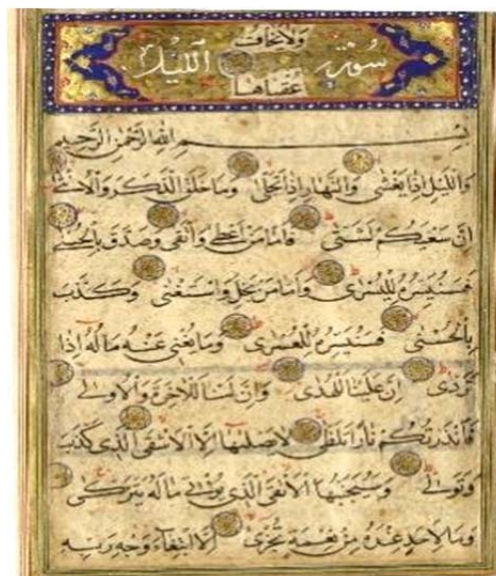 وَلَا يَخَافُ
سُورَةُ الَّيْلِ
عُقْبَاهَا
بِسْمِ اللهِ الرَّحْمٰنِ الرَّحِيمِ
وَالَّيْلِ اِذَا يَغْشٰى وَالنَّهَارِ اِذَا تَجَلّٰى وَمَا خَلَقَ الذَّكَرَ وَالْاُنْثٰى
اِنَّ سَعْيَكُمْ لَشَتّٰى فَاَمَّا مَنْ اَعْطٰى وَاتَّقٰى وَصَدَّقَ بِالْحُسْنٰى
فَسَنُيَسِّرُهُ لِلْيُسْرٰى وَاَمَّا مَنْ بَخِلَ وَاسْتَغْنٰى وَكَذَّبَ
بِالْحُسْنٰى فَسَنُيَسِّرُهُ لِلْعُسْرٰى وَمَا يُغْنِى عَنْهُ مَالُهُ اِذَا
تَرَدّٰى اِنَّ عَلَيْنَا لَلْهُدٰى وَاِنَّ لَنَا لَلْاٰخِرَةَ وَالْاُولٰى
فَاَنْذَرْتُكُمْ نَارًا تَلَظّٰى لَا يَصْلٰيهَا اِلَّا الْاَشْقَى الَّذِى كَذَّبَ
وَتَوَلّٰى وَسَيُجَنَّبُهَا الْاَتْقَى الَّذِى يُؤْتِى مَالَهُ يَتَزَكّٰى
وَمَا لِاَحَدٍ عِنْدَهُ مِنْ نِعْمَةٍ تُجْزٰى اِلَّا ابْتِغَاءَ وَجْهِ رَبِّهِ